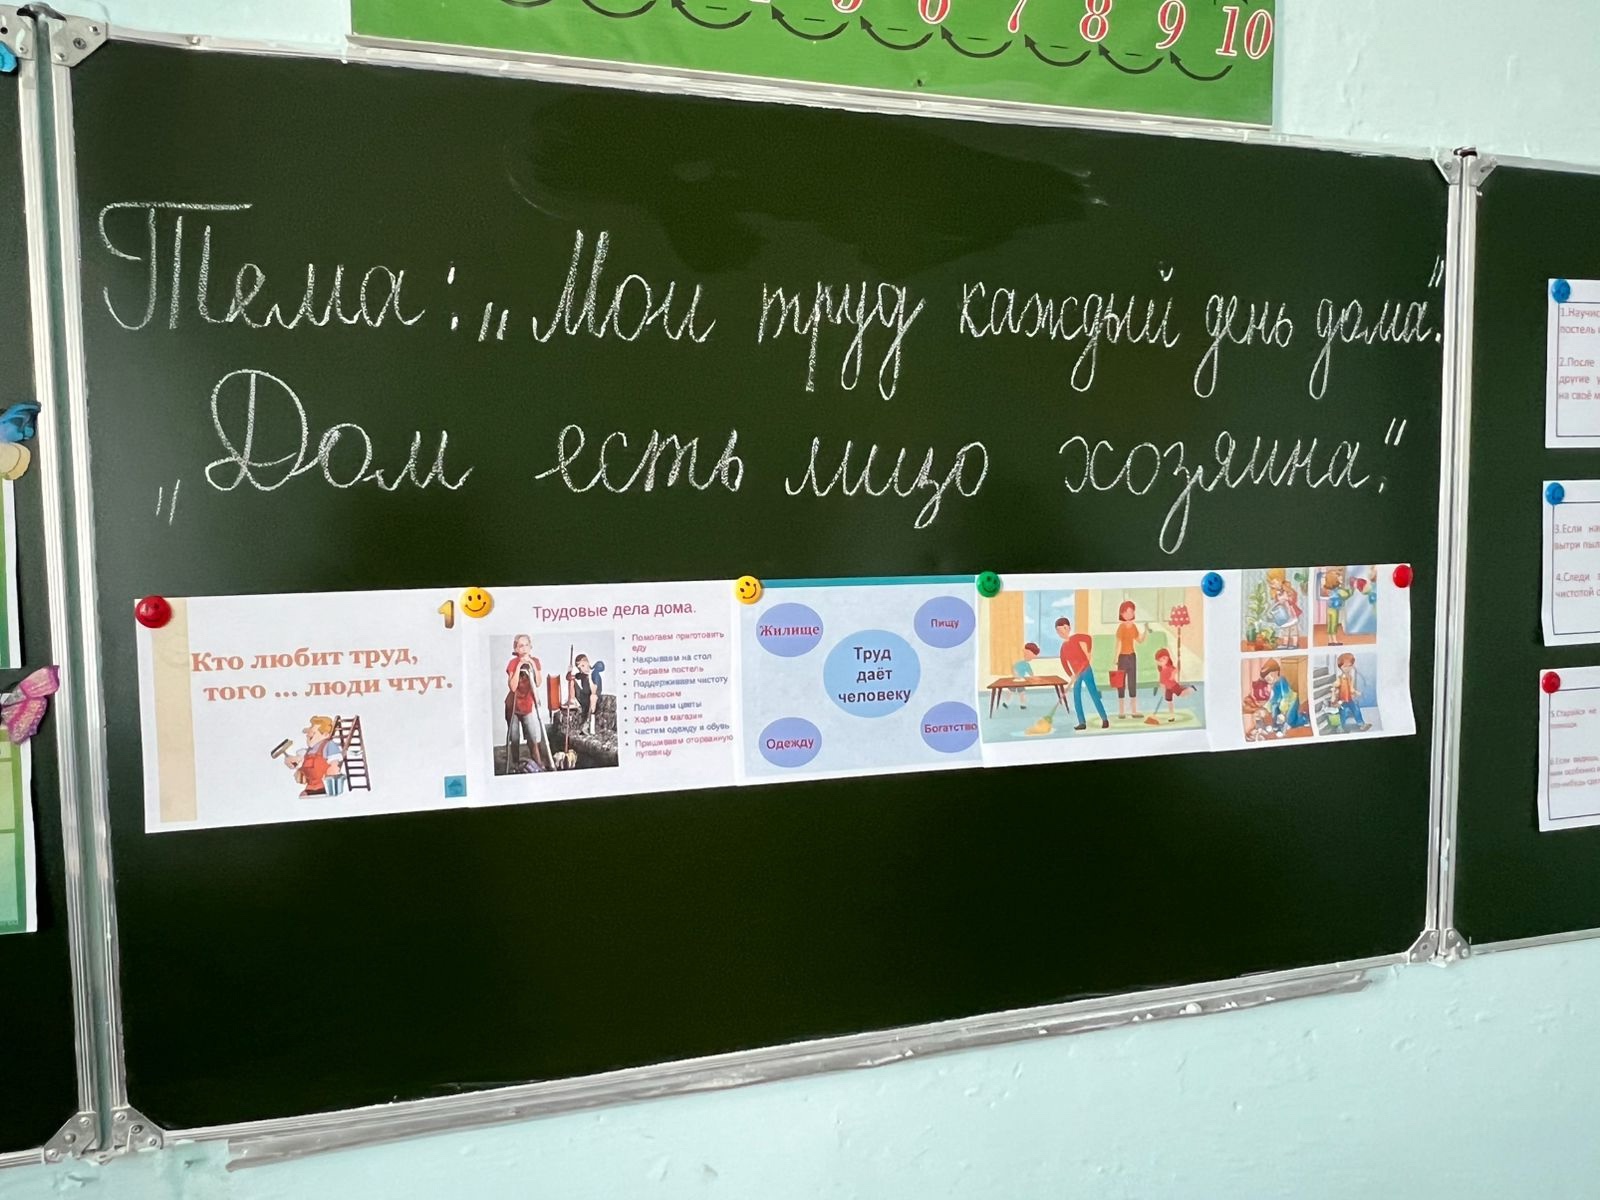 5 6 7 8 9 10
Тема: „Мои труд каждый день дома".
„Дом есть лицо хозяина."
1
Кто любит труд,
того ... люди чтут.
Трудовые дела дома.
• Помогаем приготовить
еду
• Накрываем на стол
• Убираем постель
• Поддерживаем чистоту
• Пылесосим
• Поливаем цветы
• Ходим в магазин
• Чистим одежду и обувь
• Пришиваем оторванную
пуговицу
Жилище
Пищу
Труд
даёт
человеку
Одежду
Богатство
1.Научис
постель
2.После
другие у
на своё м
3.Если на
вытри пыл
4.Следи
чистотой с
5.Старайся не
помощи.
6.Если видишь,